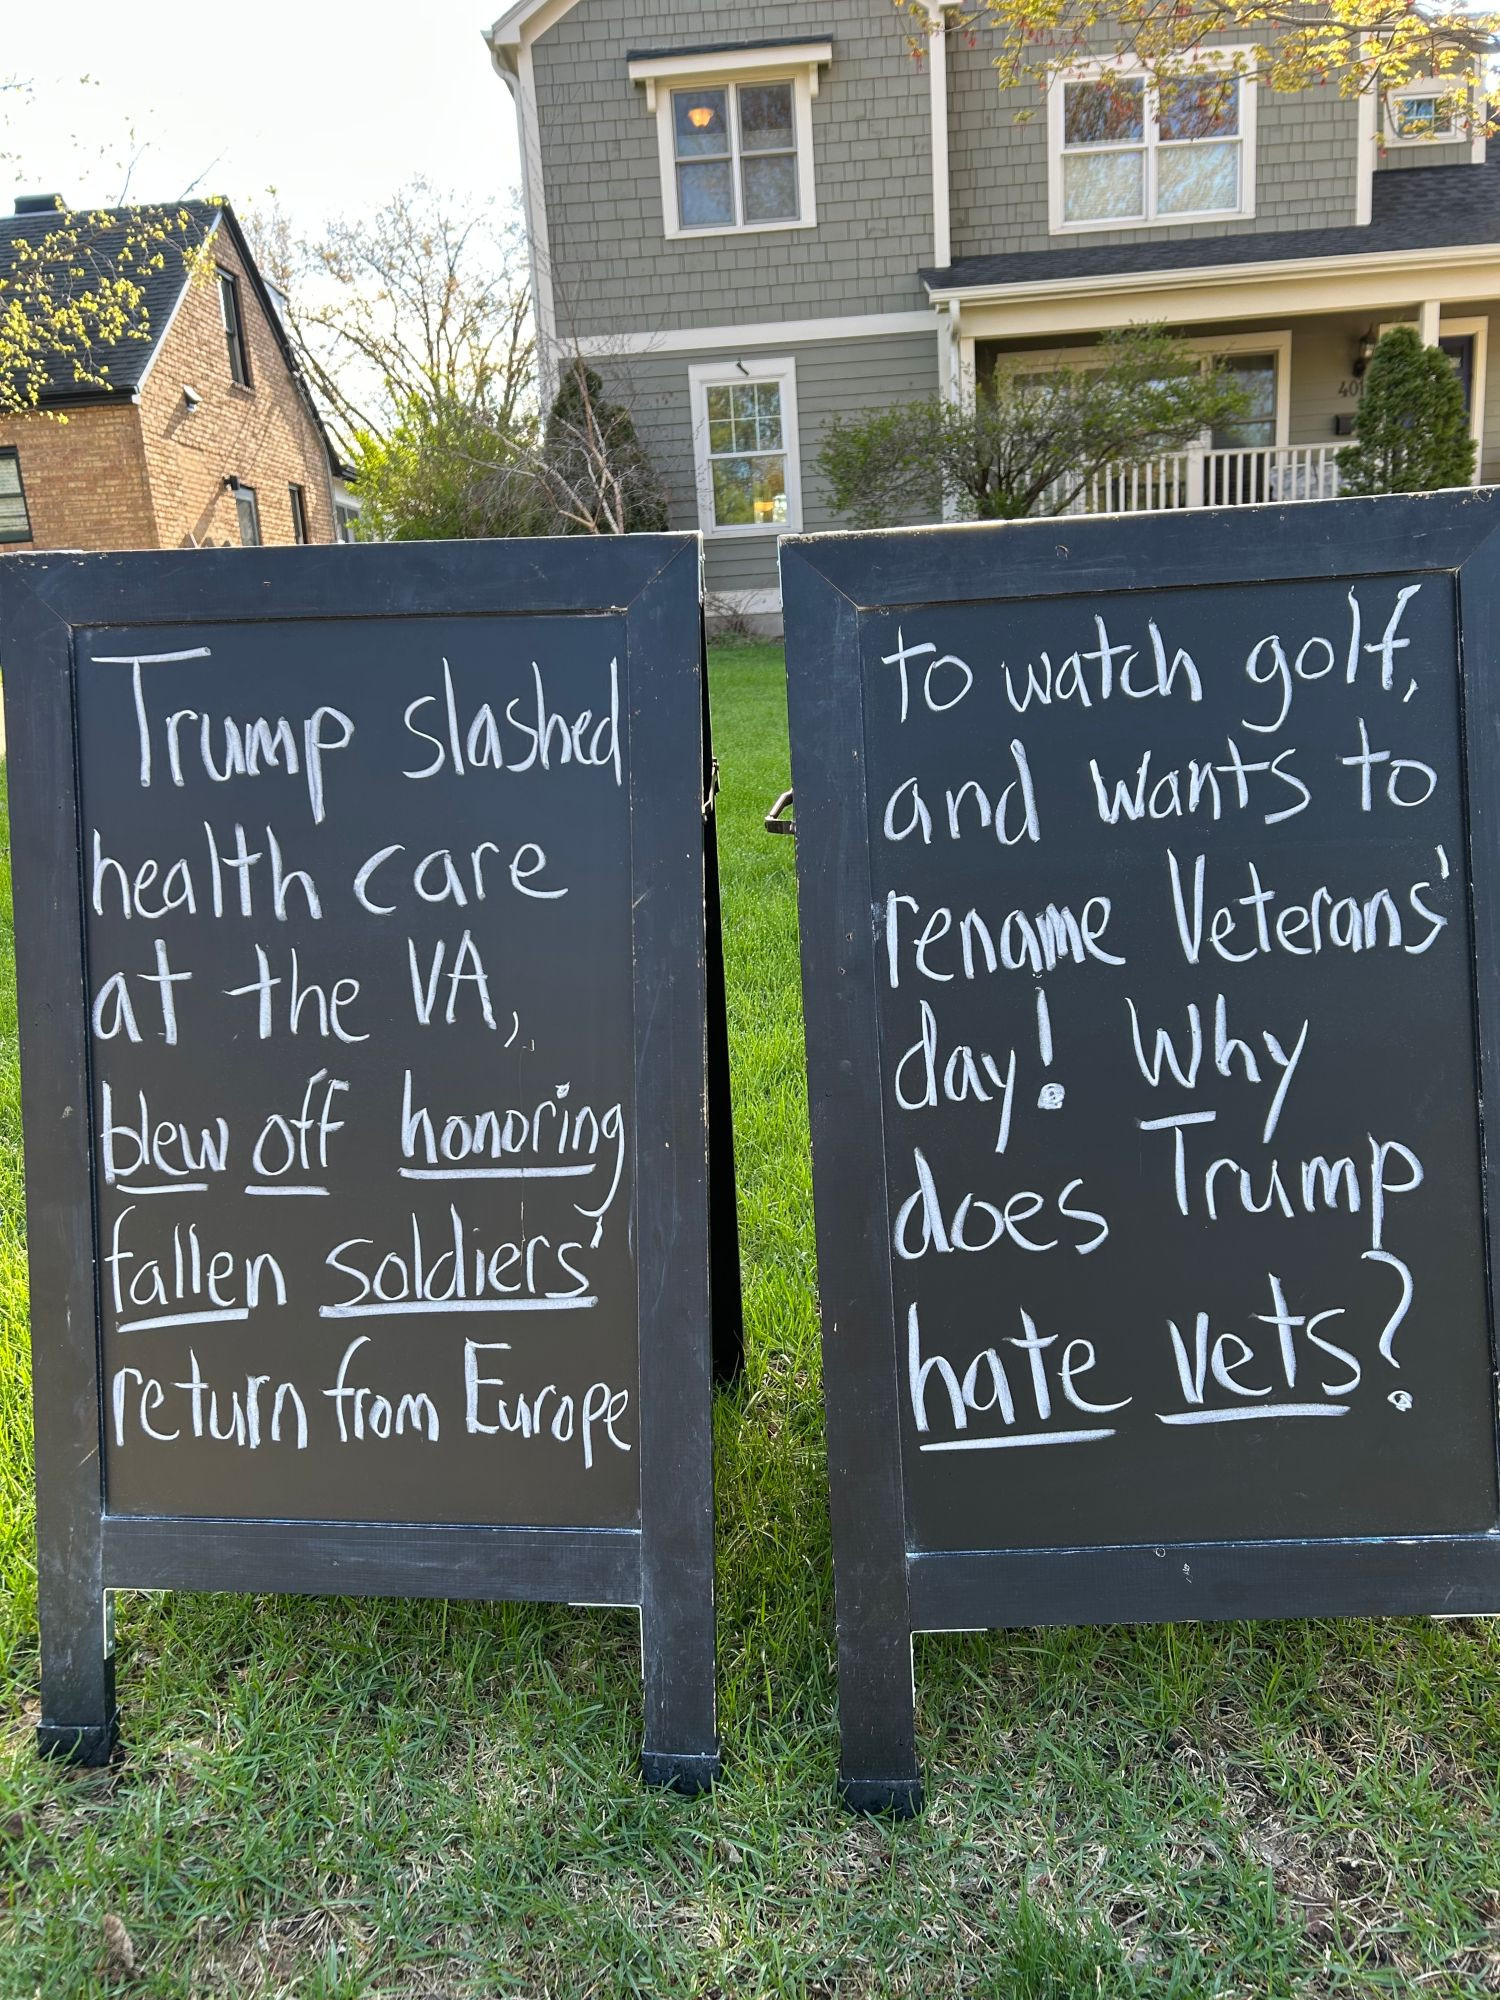 Trump slashed
health care
at the VA,
blew off honoring
fallen soldiers'
return from Europe
to watch golf,
and wants to
rename Veterans'
day! Why
does Trump
hate vets?